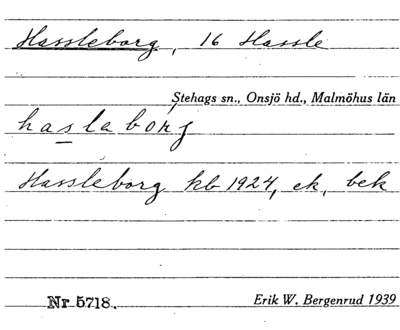 Hassleborg, 16 Hassle
Stehags sn., Onsjö hd., Malmöhus län
haslaborj
Hassleborg kb 1924, ek, bek
Nr 5718.
Erik W. Bergenrud 1939